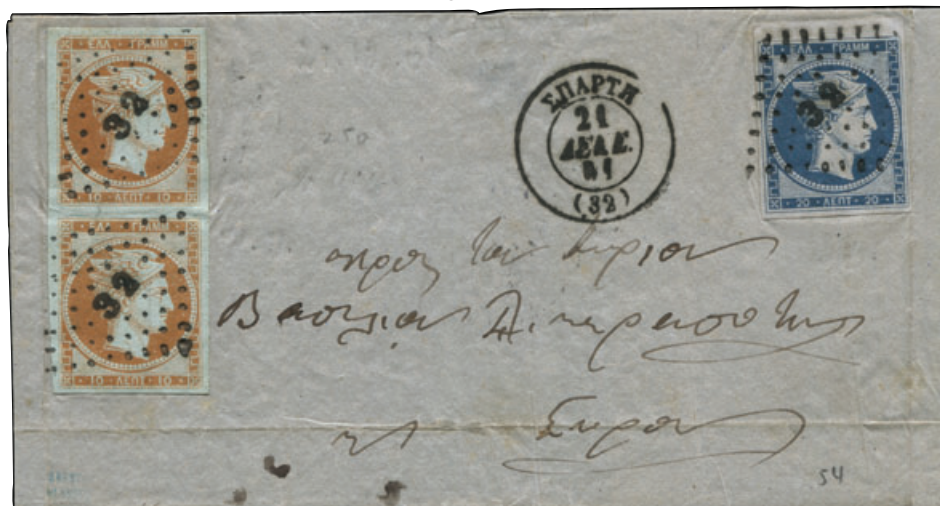 ΕΛΛ ΓΡΑΜΜ
32
10 ΛΕΠΤ 10
ΕΛΛ ΓΡΑΜΜ
32
10 ΛΕΠΤ 10
ΣΠΑΡΤΗ
21
ΔΕΚΕ.
61
(32)
ΕΛΛ ΓΡΑΜΜ
32
20 ΛΕΠΤ 20
250
προς τον Κύριον
Βασίλειον
Σύρον
54